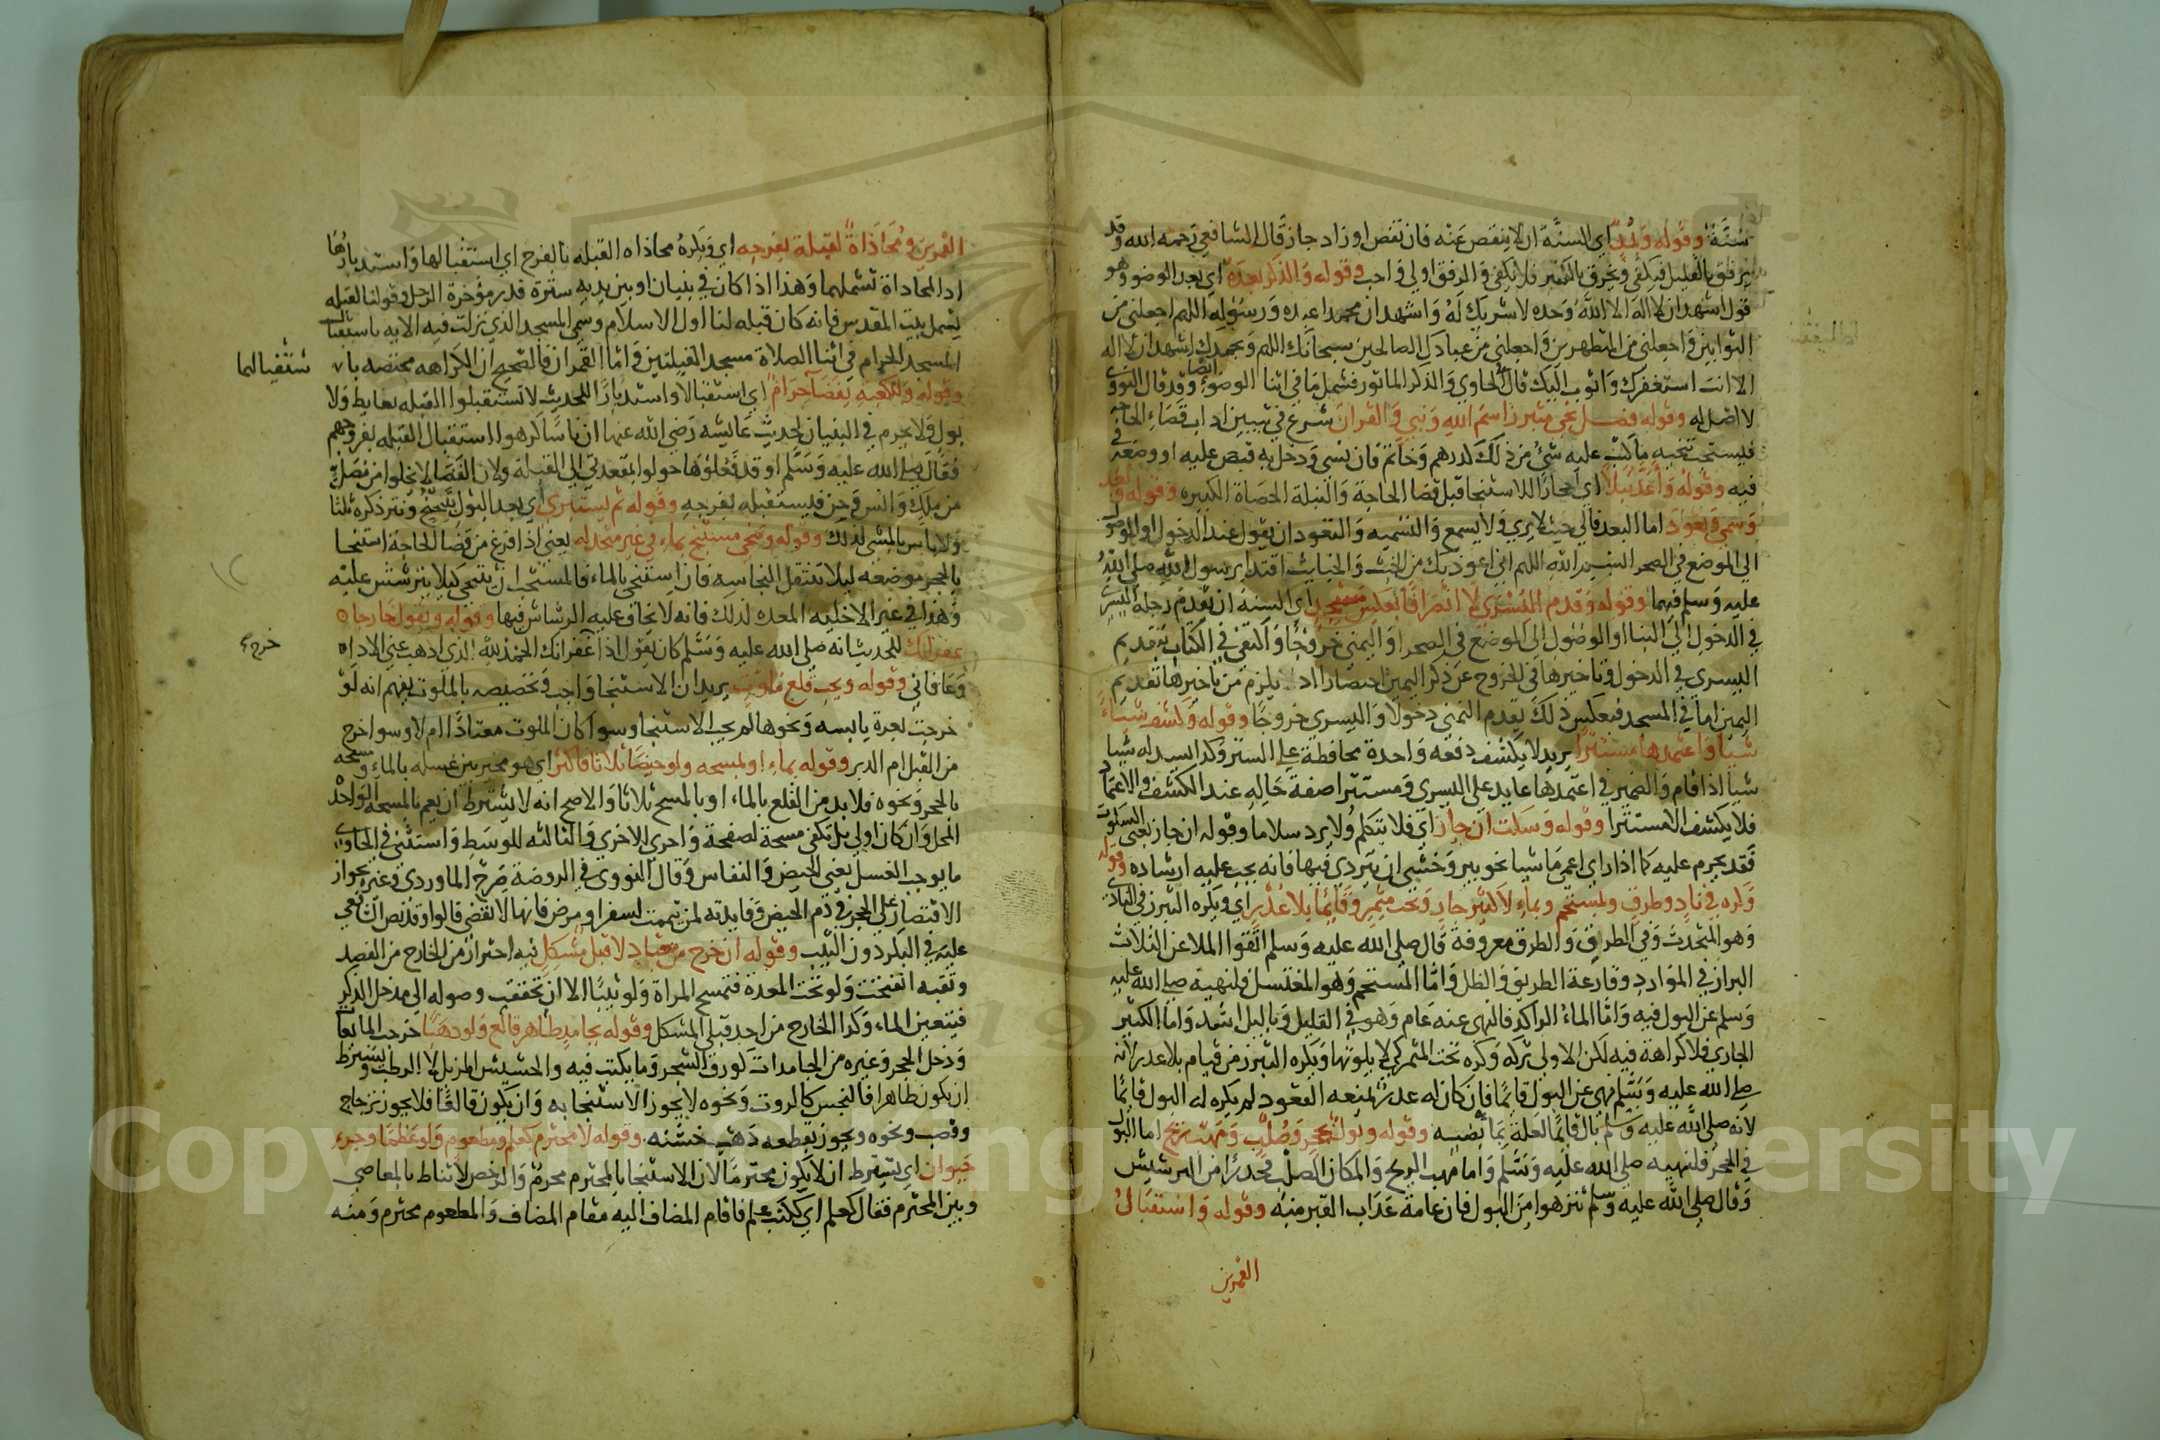 سُنّة وقوله ومُدّ اي السنة ان لا ينقص عنه فان نقص او زاد جاز قال الشافعي رحمه الله وقد
يرفق بالقليل فيكفي ويخرق بالكثير فلا يكفي والرفق اولي واحب وقوله والذكر بعده اي بعد الوضو وهو
قول اشهد ان لا اله الا الله وحده لا شريك له واشهد ان محمدا عبده ورسوله اللهم اجعلني من
التوابين واجعلني من المتطهرين واجعلني من عبادك الصالحين سبحانك اللهم وبحمدك اشهد ان لا اله
الا انت استغفرك واتوب اليك قال الحاوي والذكر الماثور فشمل ما في اثنا الوضوء ايضا وقد قال النووي
لا اصل له وقوله فصل نحي متبرز اسم الله ونبي والقران شرع في تبيين اداب قضاء الحاجه
فليستحب تنحيه ما كتب عليه شئ من ذلك كدرهم وخاتم فان نسي ودخل به قبض عليه او وضعه في
فيه وقوله وأعد نبلا اي احجارا للاستنجا قبل قضا الحاجة والنبلة الحصاة الكبيره وقوله وبعد
وسمي وتعوذ اما البعد فالي حيث لا يري ولا يسمع والتسميه والتعوذ ان يقول عند الدخول او الوصول
الي الموضع في الصحرا بسم الله اللهم اني اعوذ بك من الخبث والخبايث اقتدا برسول الله صلي الله
عليه وسلم فيهما وقوله وقدم اليسري لا انصرافا بعكس مسجد اي السنة ان يقدم رجله اليسري
في الدخول الي البنا او الوصول الي الموضع في الصحرا واليمني خروجا واكتفي في الكتاب بتقديم
اليسري في الدخول وتاخيرها في الخروج عن ذكر اليمين اختصارا اذ يلزم من تاخيرها تقديم
اليمين اما في المسجد فبعكس ذلك يقدم اليمني دخولا واليسري خروجا وقوله وكشف شيئا
شيئا واعتمدها مستترا يريد لا يكشف دفعه واحدة محافظة علي الستر وكذا ليسدله شيئا
شيئا اذا قام والضمير في اعتمدها عايد علي اليسري ومستترا صفة حاله عند الكشف والاعتماد
فلا يكشف الا مستترا وقوله وسكت ان جاز اي فلا يتكلم ولا يرد سلاما وقوله ان جاز يعني السكوت
فقد يحرم عليه كما اذا راي اعمي ماشيا نحو بير وخشي ان يتردي فيها فانه يجب عليه ارشاده وقوله
وكره في ناد وطرق ومستحم وبماء لا كثير جار وتحت مثمر وقائما بلا عذر اي ويكره التبرز في النادي
وهو المتحدث وفي الطريق والطرق معروفة قال صلي الله عليه وسلم اتقوا الملاعن الثلاث
البراز في الموارد وقارعة الطريق والظل واما المستحم وهو المغتسل فلنهيه صلي الله عليه
وسلم عن البول فيه واما الماء الراكد فالنهي عنه عام وهو في القليل وبالليل اشد واما الكثير
الجاري فلا كراهة فيه لكن الاولي تركه وكره تحت المثمر كي لا يلوثها ويكره التبرز من قيام بلا عذر لانه
صلي الله عليه وسلم نهي عن البول قائما فان كان له عذر يمنعه القعود لم يكره له البول قائما
لانه صلي الله عليه وسلم بال قائما لعلة بمأبضيه وقوله وبول بجحر وصلب ومهب ريح اما البول
في الجحر فلنهيه صلي الله عليه وسلم واما مهب الريح والمكان الصلب فحذرا من الترشيش
وقال صلي الله عليه وسلم تنزهوا من البول فان عامة عذاب القبر منه وقوله واستقبال
القمرين
القمرين ومحاذاة لقبلة بفرجه اي ويكره محاذاه القبله بالفرج اي استقبالها واستدبارها
اذ المحاذاة تشملهما وهذا اذا كان في بنيان او بين يديه سترة قدر مؤخرة الرحل وقولنا القبله
يشمل بيت المقدس فانه كان قبله لنا اول الاسلام وسمي المسجد الذي نزلت فيه الايه باستقبال
المسجد الحرام في اثنا الصلاة مسجد القبلتين واما القمران فالصحيح ان الكراهه مختصه با
ستقبالهما
وقوله وللكعبه بفضا حرام اي استقبالا واستدبارا للحديث لا تستقبلوا القبله بغايط ولا
بول ولا يحرم في البنيان لحديث عايشه رضي الله عنها ان ناسا كرهوا استقبال القبله بفروجهم
فقال صلي الله عليه وسلم اوقد فعلوها حولوا مقعدتي الي القبلة ولان الفضا لا يخلوا من مصل
من ملك وانس وجن فليستقبله بفرجه وقوله ثم يستبري اي بعد البول بتنحنح ونتر ذكره ثلثا
ولا باس بالمشي لذلك وقوله ونحي مستنج بماء في غير متخذ له يعني اذا فرغ من قضا الحاجة استنجا
بالحجر موضعه ليلا تنتقل النجاسه فان استنجي بالماء فالمستحب ان يتنحي كيلا يترشش عليه
وهذا في غير الاخليه المعده لذلك فانه لا يخاف عليه الرشاش فيها وقوله ويقول خارجا
خرج
غفرانك للحديث انه صلي الله عليه وسلم كان يقول اذا غفرانك الحمد لله الذي اذهب عني الاذاه
وعافاني وقوله ويجب قلع ملوث يريد ان الاستنجا واجب وتخصيصه بالملوث يفهم انه لو
خرجت بعرة يابسه ونحوها لم يجب الاستنجا وسوا كان الملوث معتادا ام لا وسوا خرج
من القبل ام الدبر وقوله بماء او لمسحه ولو حيضا ثلاثا فاكثر اي هو مخير بين غسله بالماء ومسحه
بالحجر ونحوه فلا بد من القلع بالماء او بالمسح ثلاثا والاصح انه لا يشترط ان يعم بالمسحه الواحدة
المحل وان كان اولي بل يكفي مسحة لصفحة واخري للاخري والثالثه للوسط واستثني في الحاوي
ما يوجب الغسل يعني الحيض والنفاس وقال النووي في الروضة صرح الماوردي وغيره بجواز
الاقتصار علي الحجر في دم الحيض وفايدته لمن تيممت لسفر او مرض فانها لا تقضي قالوا وقد نص الشافعي
عليه في البكر دون الثيب وقوله ان خرج من معتاد لا قبل مشكل نبه احترازا من الخارج من الفصد
وثقبه انفتحت ولو تحت المعدة فتمسح المراة ولو ثيبا الا ان تحقق وصوله الي مدخل الذكر
فيتعين الماء وكذا الخارج من احد قبلي المشكل وقوله بجامد طاهر قالع ولو ذهبا خرجت المايعات
ودخل الحجر وغيره من الجامدات كورق الشجر وما يكتب فيه والحشيش المزيل لا الرطب ويشترط
ان يكون طاهرا فالنجس كالروث ونحوه لا يجوز الاستنجا به وان يكون قالعا فلا يجوز بزجاج
وقصب ونحوه ويجوز بقطعه ذهب خشنه وقوله لا محترم كعلم ومطعوم ولو عظما وجزء
حيوان اي يشترط ان لا يكون محترما لان الاستنجا بالمحترم محرم والرخص لا تناط بالمعاصي
وبين المحترم فقال كعلم اي ككتب علم فاقام المضاف اليه مقام المضاف والمطعوم محترم ومنه